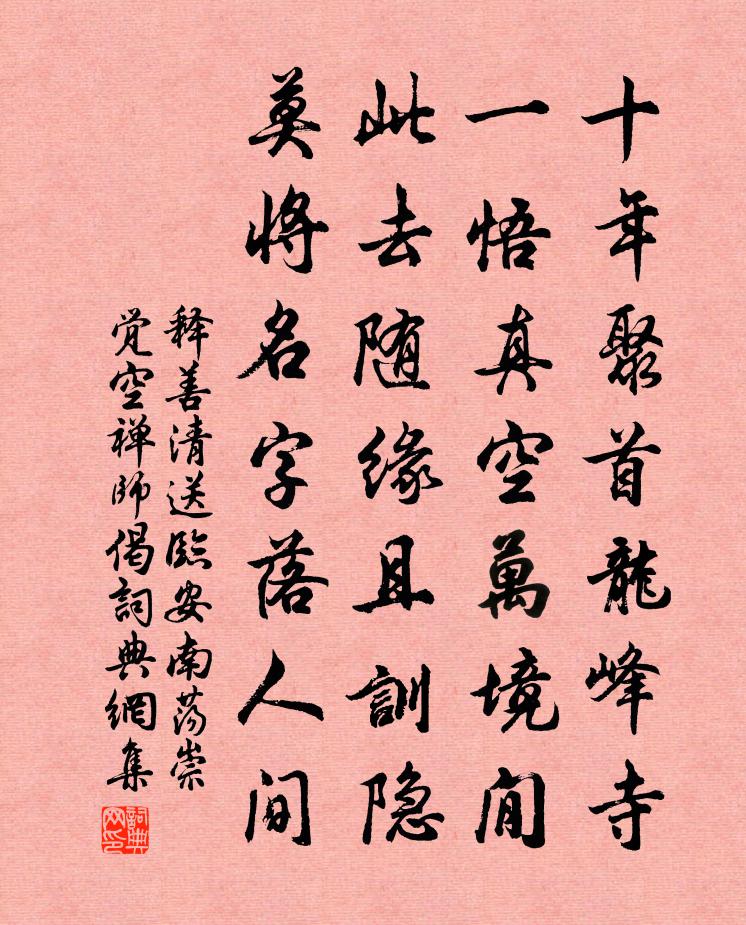 十年聚首龍峰寺
一悟真空萬境閒
此去随緣且訓隐
莫将名字落人间
释善清送臨安南蕩崇
觉空禅師偈詞典網集
詞典网印